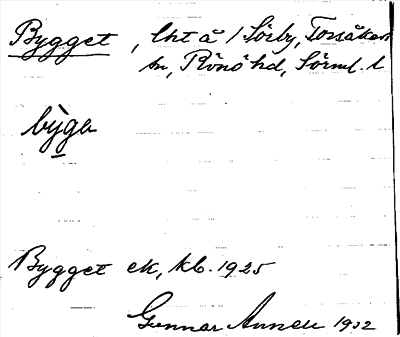 Bygget, lht å 1 Sörby, Torsåkers
sn, Rönö hd, Sörml. l
bỳga
Bygget ek, kb. 1925
Gunnar Annell 1932